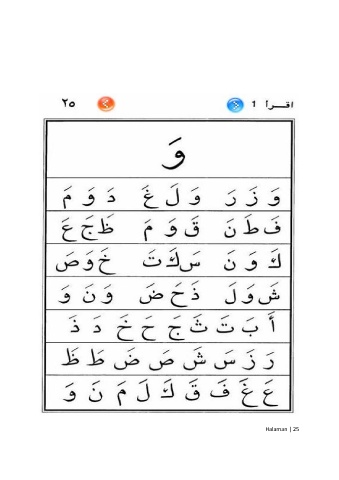 اقرأ ١ ٢٥
وَ
وَ زَ رَ وَ لَ غَ دَ وَ مَ
فَ طَ نَ قَ وَ مَ ظَ جَ عَ
كَ وَ نَ سَ كَ تَ خَ وَ صَ
شَ وَ لَ ذَ حَ ضَ وَ نَ وَ
أَ بَ تَ ثَ جَ حَ خَ دَ ذَ
رَ زَ سَ شَ صَ ضَ طَ ظَ
عَ غَ فَ قَ كَ لَ مَ نَ وَ
Halaman | 25